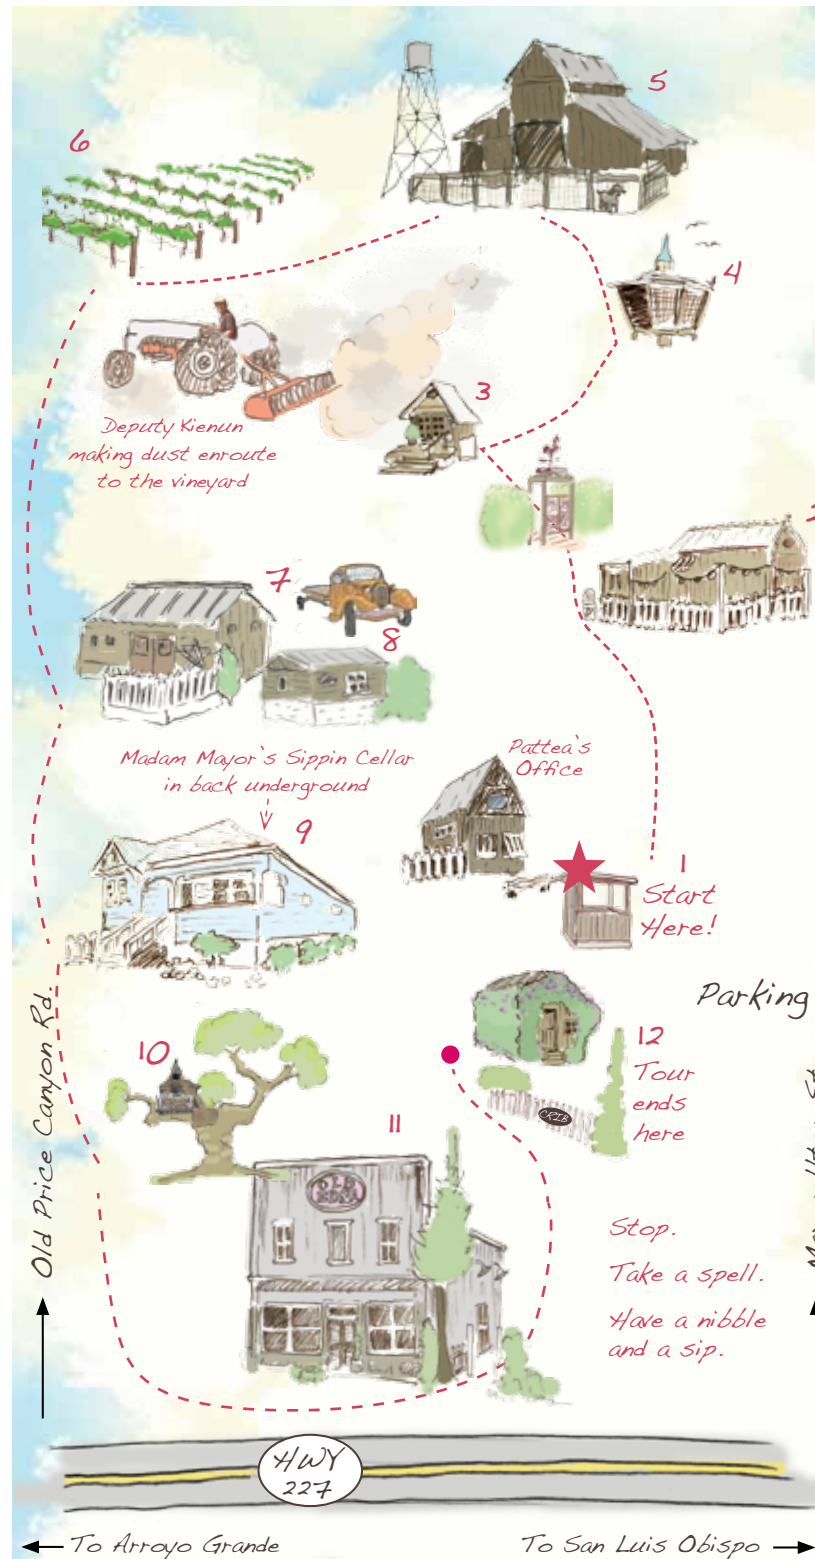 5
6
4
3
Deputy Kienun
making dust enroute
to the vineyard
7
8
Madam Mayor's Sippin Cellar
in back underground
Pattea's
Office
9
1
Start
Here!
Parking
10
12
Tour
ends
here
CRIB
11
OLD
EDNA
Old Price Canyon Rd.
Stop.
Take a spell.
Have a nibble
and a sip.
HWY
227
To Arroyo Grande
To San Luis Obispo